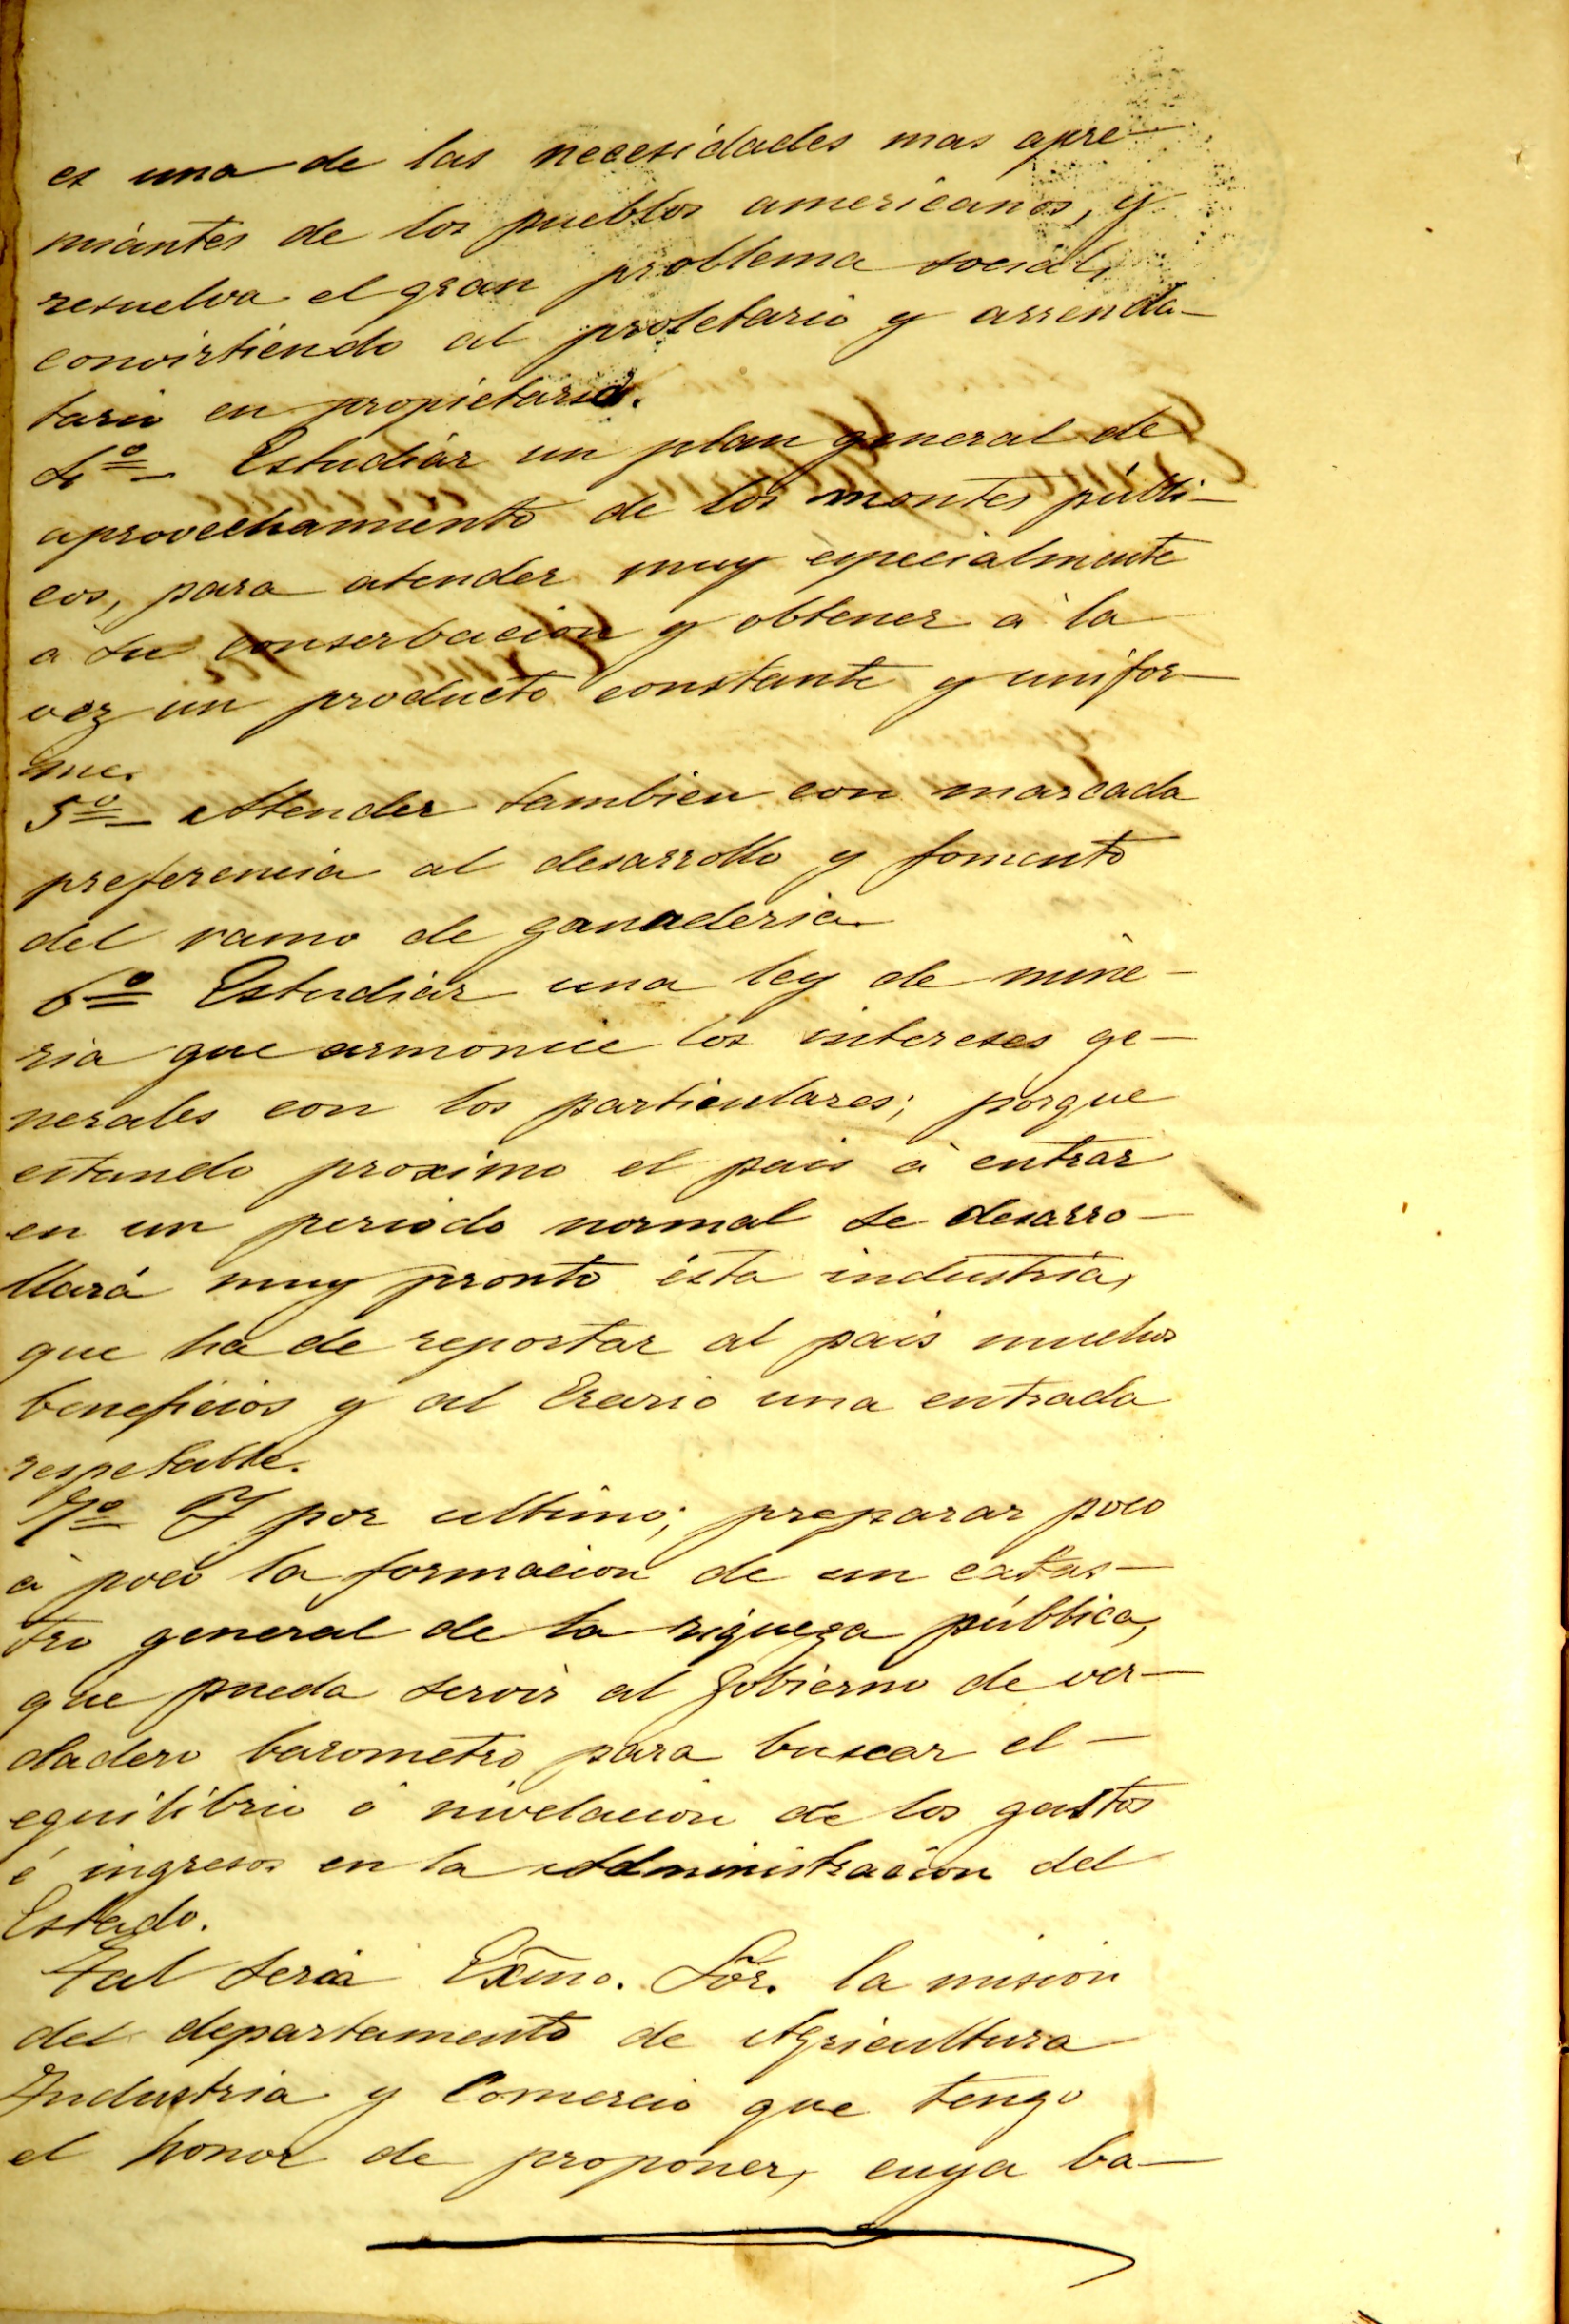 es una de las necesidades mas apre-
miantes de los pueblos americanos, y
resuelva el gran problema social,
convirtiendo al proletario y arrenda-
tario en propietario.
4º- Estudiar un plan general de
aprovechamiento de los montes públi-
cos, para atender muy especialmente
a su conserbación y obtener á la
vez un producto constante y unifor-
me.
5º- Atender tambien con marcada
preferencia al desarrollo y fomento
del ramo de ganaderia.
6º Estudiar una ley de mine-
ria que armonice los intereses ge-
nerales con los particulares; porque
estando proximo el pais á entrar
en un periodo normal se desarro-
llará muy pronto ésta industria,
que ha de reportar al pais muchos
beneficios y al Erario una entrada
respetable.
7º Y por ultimo; preparar poco
á poco la formacion de un catas-
tro general de la riqueza pública,
que pueda servir al Gobierno de ver-
dadero barometro para buscar el-
equilibrio ó nivelacion de los gastos
é ingresos en la Administracion del
Estado.
Tal será Exmo. Sör. la mision
del departamento de Agricultura
Industria y Comercio que tengo
el honor de proponer, cuya ba-